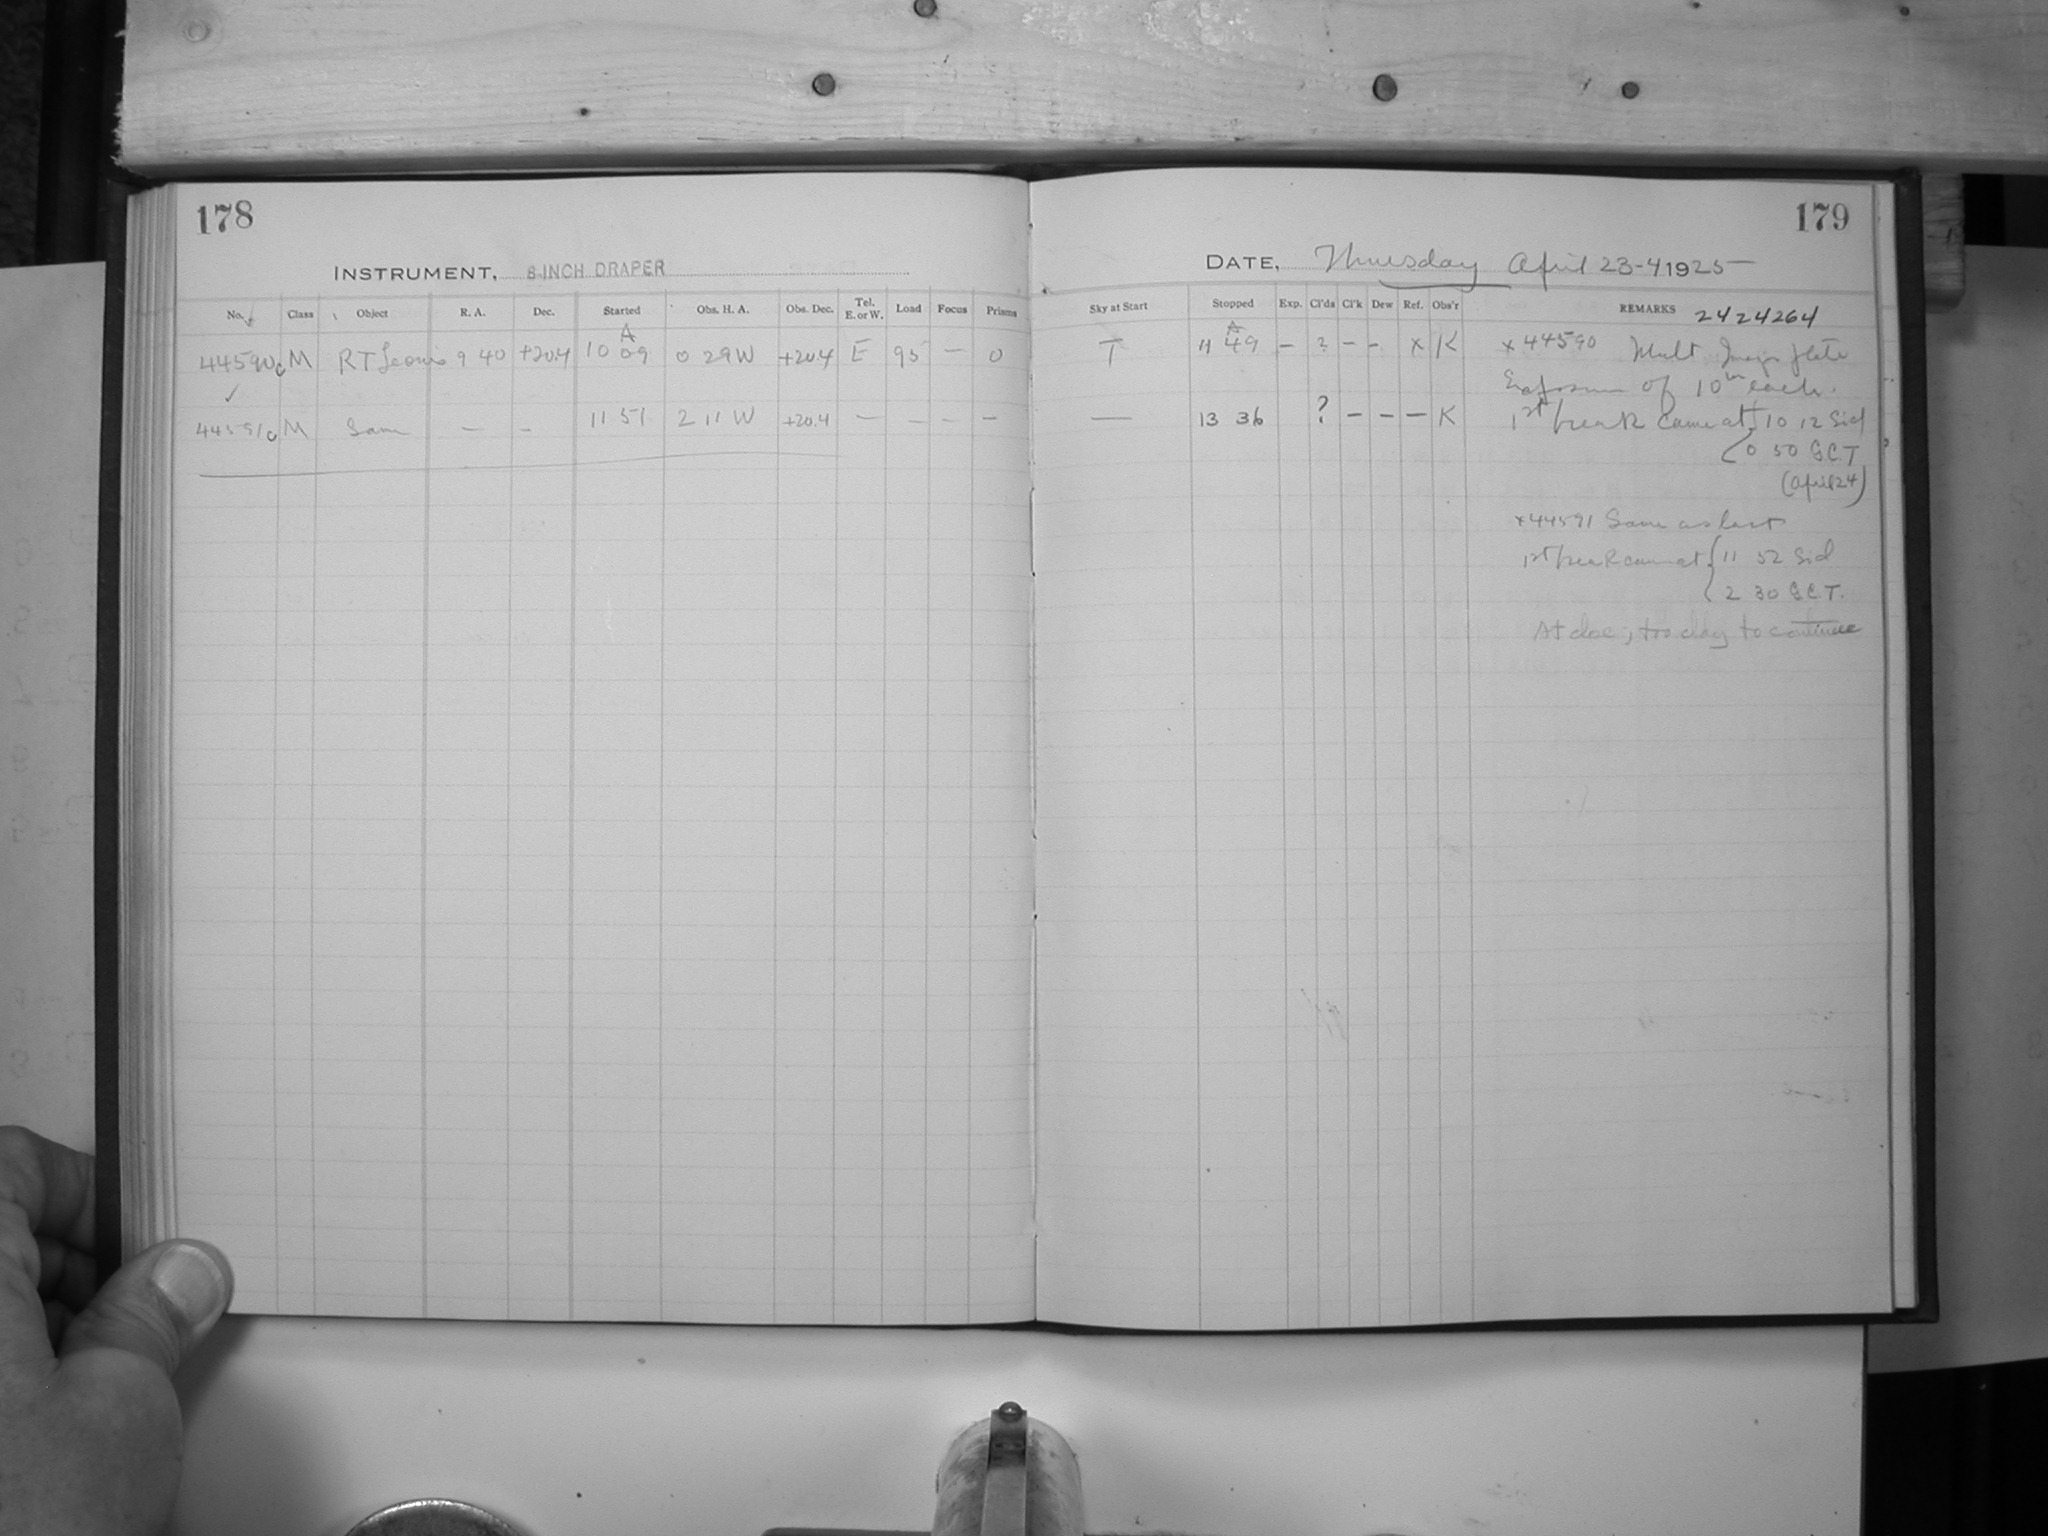 178
INSTRUMENT, 8-INCH DRAPER
No. Class Object R. A. Dec. Started Obs. H. A. Obs. Dec. Tel. E. or W. Load Focus Prisms
A
44590c M RT Leonis 9 40 +20.4 10 09 0 29 W +20.4 E 95 — 0
✓
44591c M Same — — 11 51 2 11 W +20.4 — — — —
179
DATE, Thursday April 23-4 1925
Sky at Start Stopped Exp. Cl'ds Cl'k Dew Ref. Obs'r REMARKS 2424264
A
T 11 49 — ? — — x K x 44590 Mult Image plate
Exposures of 10m each.
— 13 36 ? — — — K 1st break came at { 10 12 Sid
0 50 G.C.T
(April 24)
x 44591 Same as last
1st break came at { 11 52 Sid
2 30 G.C.T.
to continue